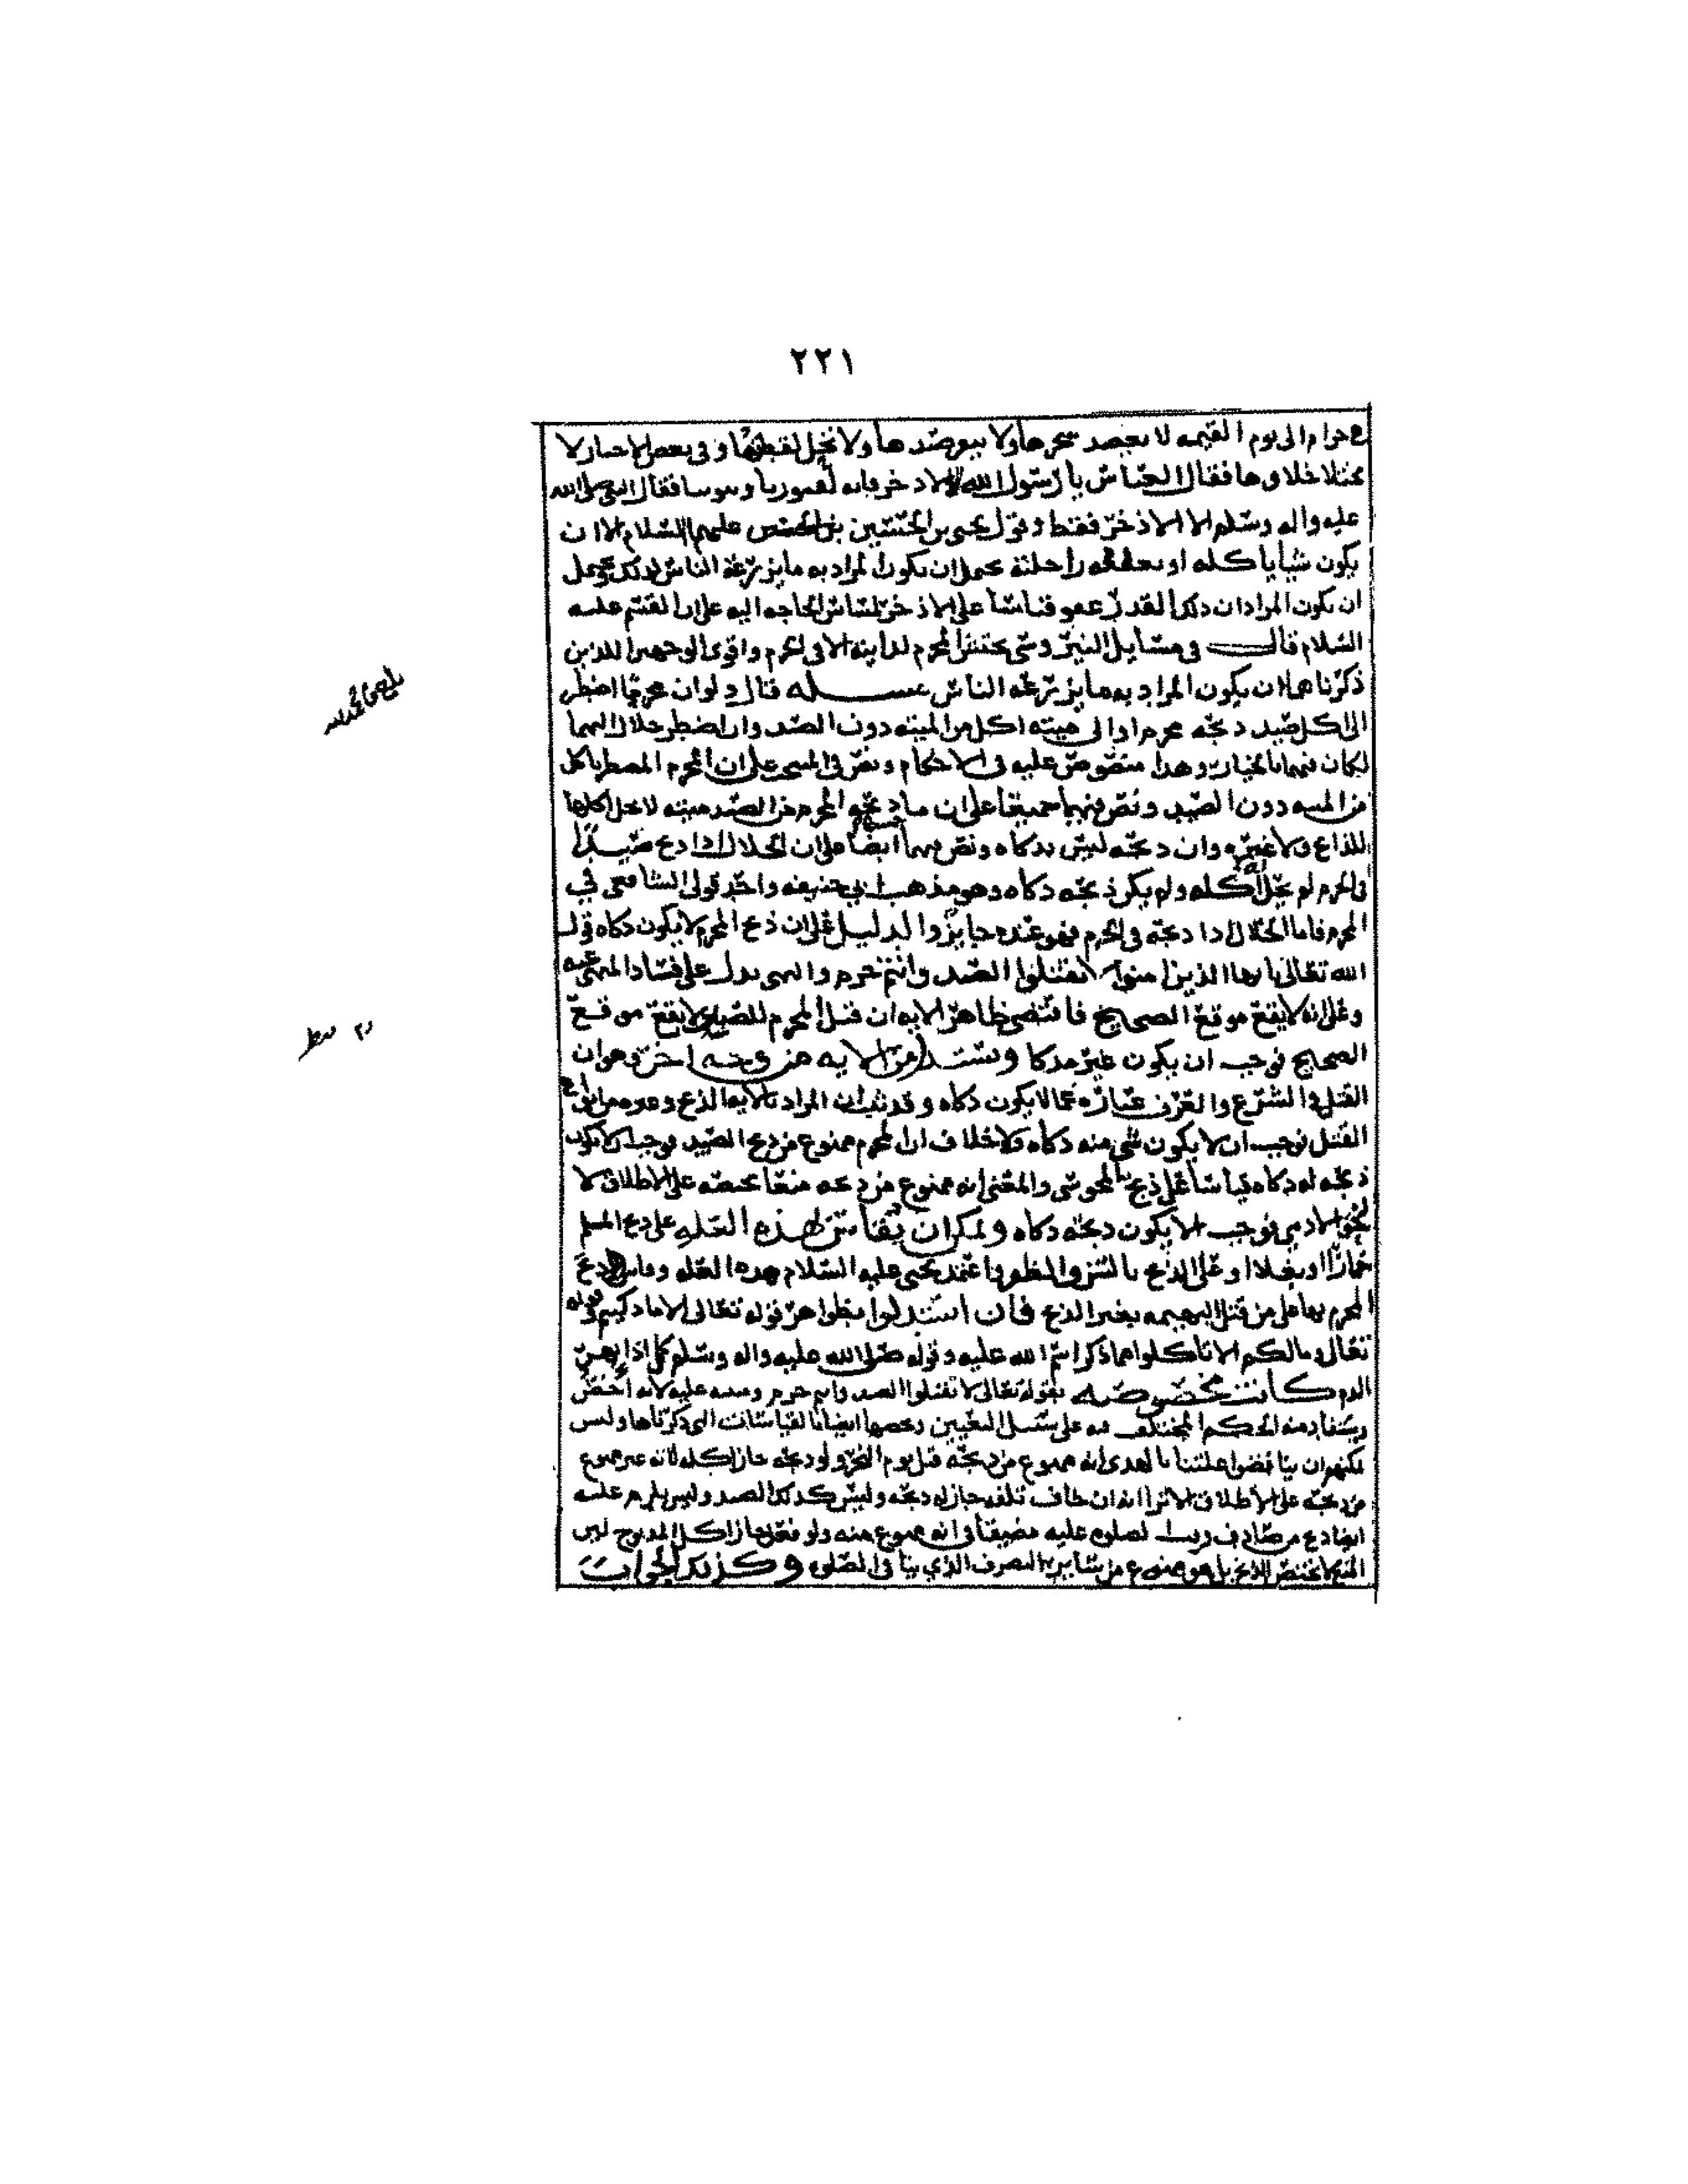 ٢٢١
حرام الى يوم القيمه لا يعضد شجرها ولا ينفر صيدها ولا تحل لقطتها وفي بعض الاخبار لا
يختلا خلاوها فقال العباس يا رسول الله الا الاذخر فانه لقبورنا وبيوتنا فقال النبي صلى الله
عليه واله وسلم الا الاذخر فقط وقول يحيى بن الحسين بن القسم عليهم السلام الا ان
يكون شيا ياكله او يعلفه راحلته يحمل ان يكون المراد به ما يزرعه الناس لذلك ويحتمل
ان يكون المراد ان ذلك القدر عفو قياسا على الاذخر لمساس الحاجه اليه على ان القسم عليه
السلام قال في مسايل النيروسي يحتش المحرم لدابته الا في الحرم واقوى الوجهين اللذين
ذكرناهما ان يكون المراد به ما يزرعه الناس مسله قال ولو ان محرما اضطر
الى اكل صيد ذبحه محرم او الى ميته اكل من الميته دون الصيد وان اضطر حلال اليهما
لكان فيهما بالخيار وهذا منصوص عليه في الاحكام ونص في المنتخب على ان المحرم المضطر ياكل
من الميته دون الصيد ونص فيهما جميعا على ان ما ذبحه المحرم من الصيد ميته لا يحل اكلها
للذابح ولا غيره وان ذبحه ليس بذكاه ونص فيهما ايضا على ان الحلال اذا ذبح صيدا
في الحرم لم يحل له اكله ولم يكن ذبحه ذكاه وهو مذهب ابي حنيفه واحد قولي الشافعي في
المحرم فاما الحلال اذا ذبحه في الحرم فهو عنده جايز والدليل على ان ذبح المحرم لا يكون ذكاه قول
الله تعالى يا ايها الذين امنوا لا تقتلوا الصيد وانتم حرم والنهي يدل على فساد المنهي عنه
وعلى انه لا يقع موقع الصحيح فاقتضى ظاهر الايه ان قتل المحرم للصيد لا يقع موقع
الصحيح فوجب ان يكون غير مذكا ويستدل من الايه من وجه اخر وهو ان
القتل في الشرع والعرف عباره عما لا يكون ذكاه وقد ثبت ان المراد بالايه الذبح وغيره من انواع
القتل فوجب ان لا يكون شي منه ذكاه ولا خلاف ان المحرم ممنوع من ذبح الصيد فوجب ان لا يكون
ذبحه له ذكاه قياسا على ذبح المجوسي والمعنى انه ممنوع من ذبحه منعا يخصه على الاطلاق لا
لحق الادمي فوجب الا يكون ذبحه ذكاه ويمكن ان يقاس بهذه العله على ذبح المسلم
حمارا او بغلا او على الذبح بالسن والظفر واعتمد يحيى عليه السلام هذه العله وقاس ذبح
المحرم بها على من قتل البهيمه بغير الذبح فان استدلوا بظواهر قوله تعالى الا ما ذكيتم وقوله
تعالى وما لكم الا تاكلوا مما ذكر اسم الله عليه وقوله صلى الله عليه واله وسلم كل اذا انهر
الدم كانت مخصوصه بقوله تعالى لا تقتلوا الصيد وانتم حرم ومبنيه عليه لانه اخص
ويستفاد منه الحكم المختلف فيه على سبيل التعيين ونخصها ايضا بالقياسات التي ذكرناها وليس
يمكنهم ان يناقضوا علتنا بالهدي انه ممنوع من ذبحه قبل يوم النحر ولو ذبحه جاز اكله لانه غير ممنوع
من ذبحه على الاطلاق الا ترا انه ان خاف تلفه جاز له ذبحه وليس كذلك الصيد وليس يلزم عليه
ايضا ذبح من صادف وقت الصلوه عليه مضيقا في انه ممنوع منه ولو فعل جاز اكل المذبوح لان
المنع لا يختص الذبح بل هو ممنوع من ساير التصرف الذي ينافي الصلوه وكذلك الجواب